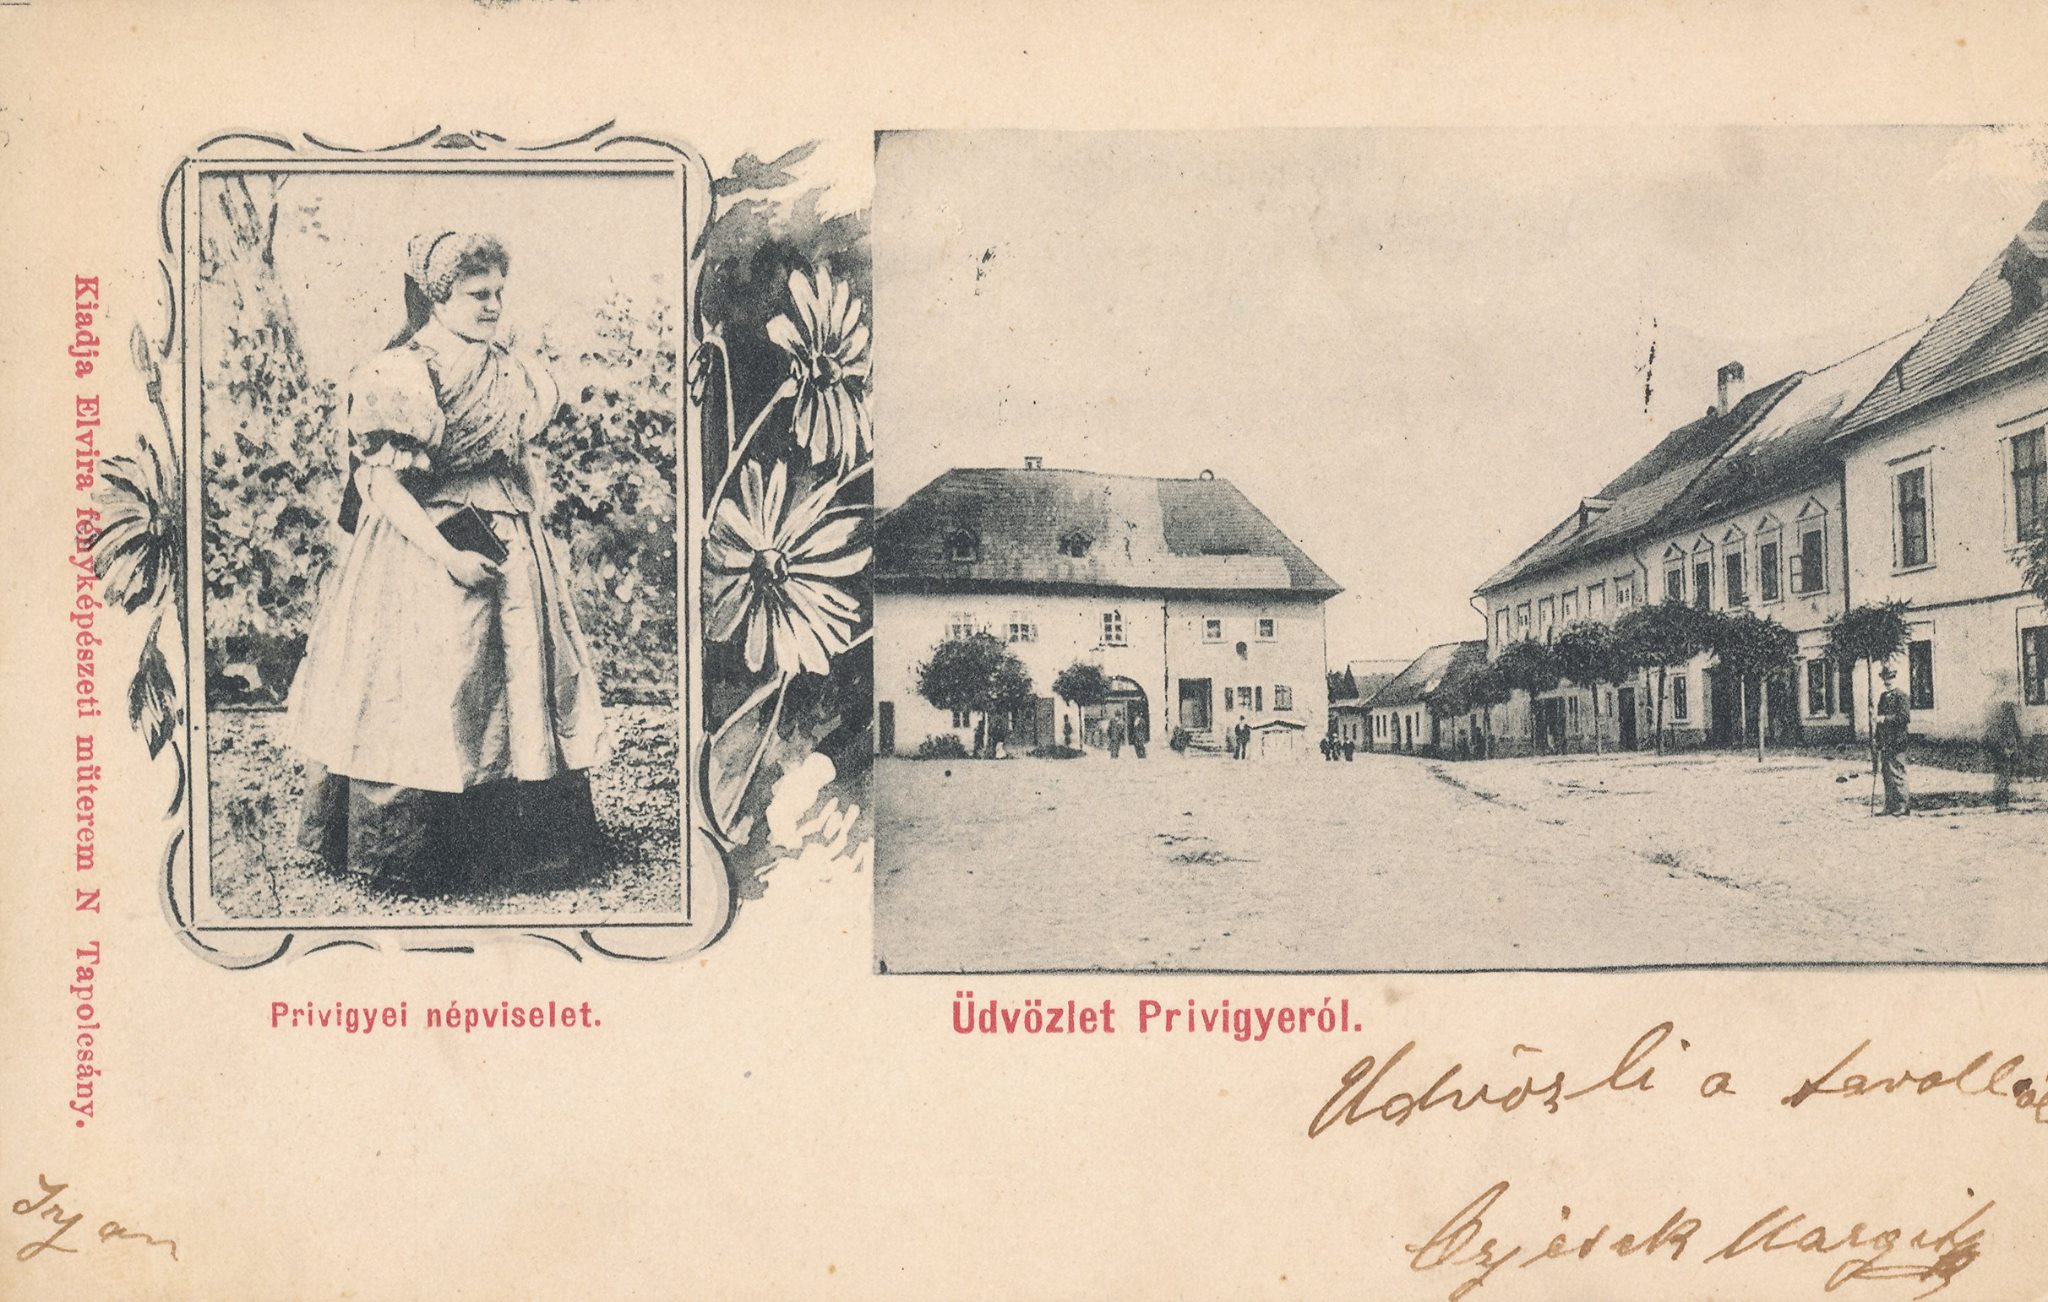 Kiadja Elvira fényképészeti müterem N Tapolcsány.
Privigyei népviselet.
Üdvözlet Privigyeról.
Udvözli a
Margit